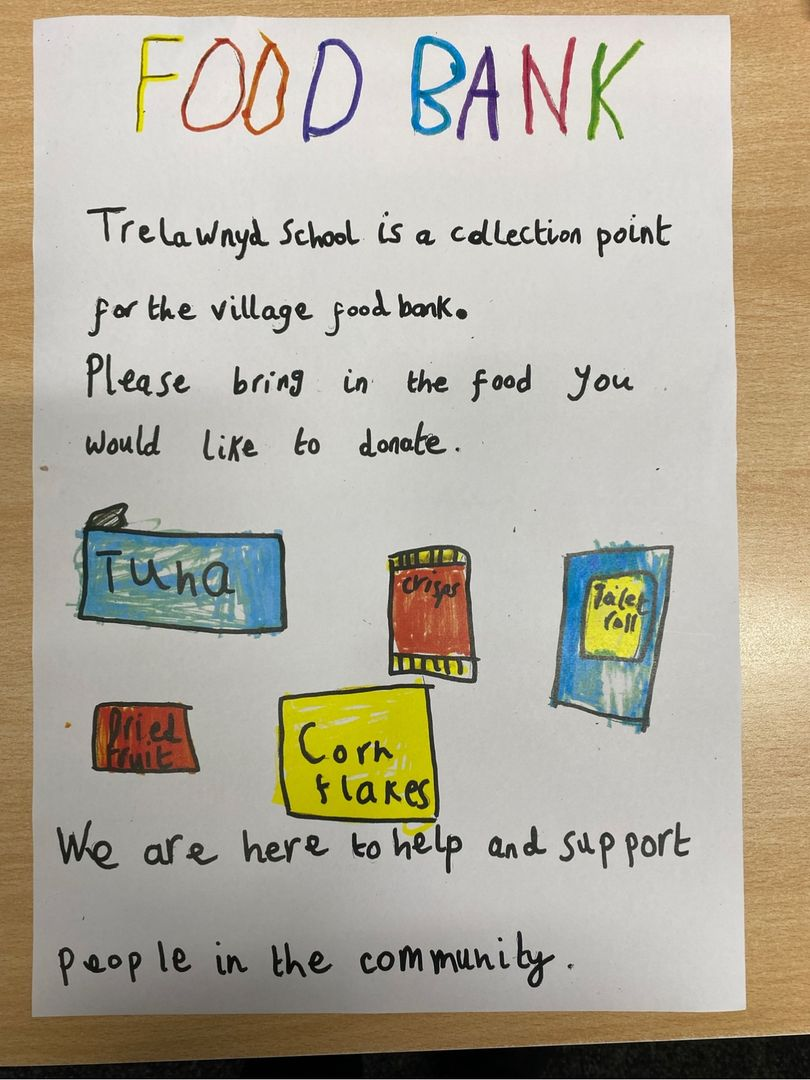 FOOD BANK
Trelawnyd School is a collection point
for the village food bank.
Please bring in the food you
would like to donate.
Tuna
crisps
Toilet
roll
Dried
fruit
Corn
flakes
We are here to help and support
people in the community.